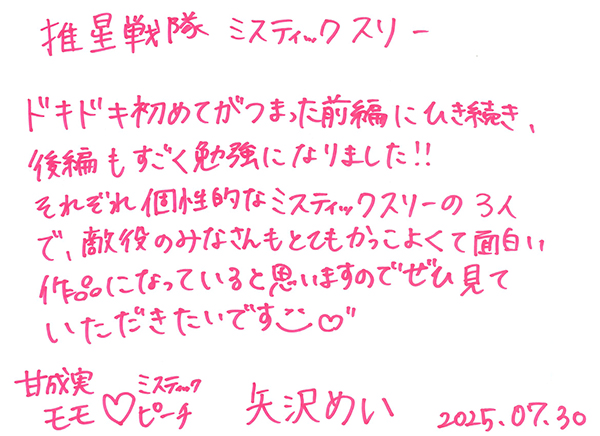 推星戦隊 ミスティックスリー
ドキドキ初めてがつまった前編にひき続き、
後編もすごく勉強になりました!!
それぞれ個性的なミスティックスリーの3人
で、敵役のみなさんもとてもかっこよくて面白い
作品になっていると思いますのでぜひ見て
いただきたいです
甘成実 ミスティック
モモ♡ピーチ 矢沢めい 2025.07.30